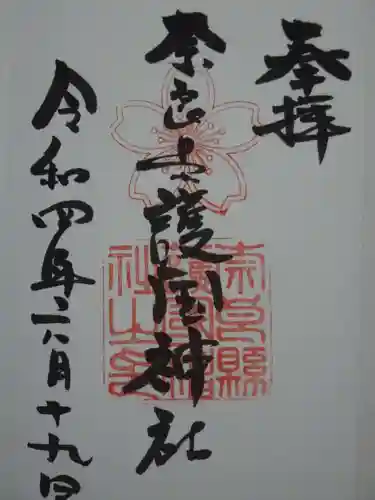 奉拝
奈良縣護国神社
奈良縣護國神社之印
令和四年二月十九日